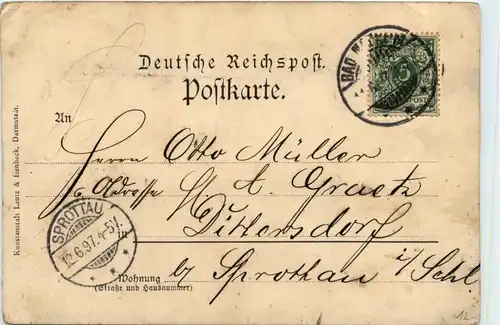 Deutsche Reichspost.
Postkarte.
BAD
5
An
Herrn Otto Müller
Adresse A. Graetz
Dittersdorf
in
b/ Sprottau i/Schl.
Wohnung
(Straße und Hausnummer)
SPROTTAU
12.6.97. 4-5N.
Kunstanstalt Lautz & Isenbeck, Darmstadt.
12